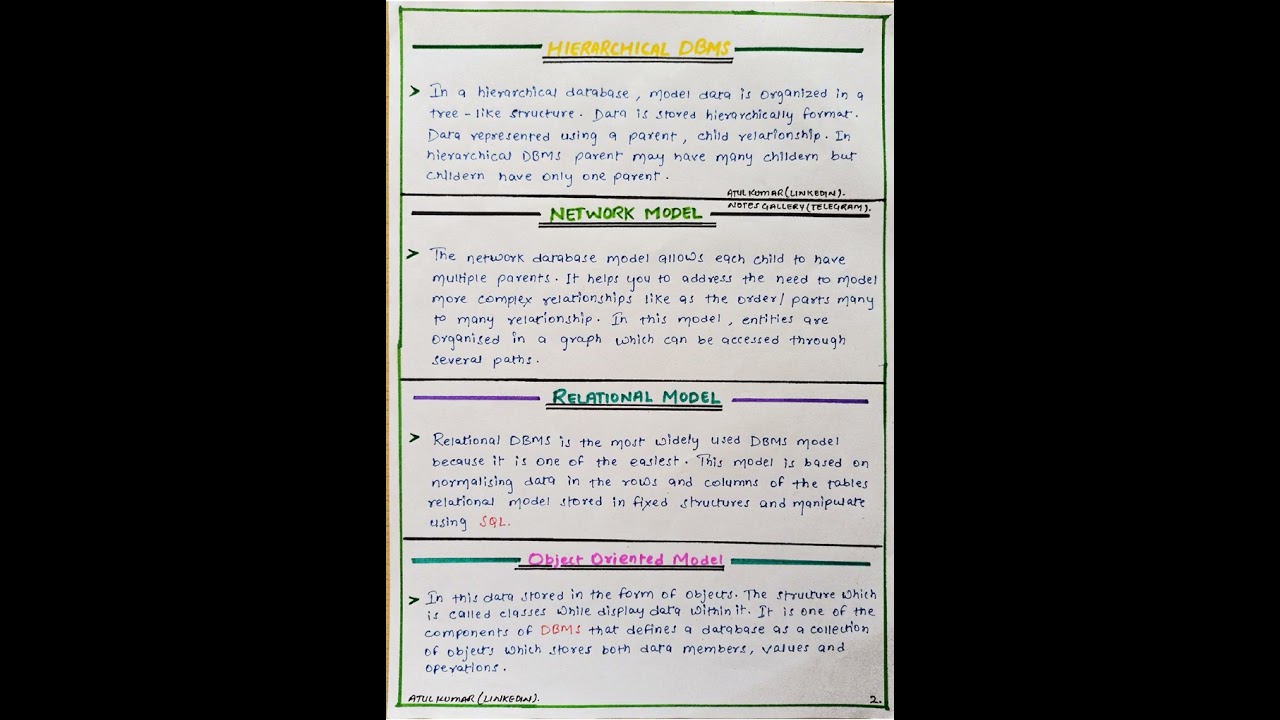 HIERARCHICAL DBMS
In a hierarchical database, model data is organized in a
tree-like structure. Data is stored hierarchically format.
Data represented using a parent, child relationship. In
hierarchical DBMS parent may have many childern but
childern have only one parent.
ATUL KUMAR (LINKEDIN).
NOTES GALLERY (TELEGRAM).
NETWORK MODEL
The network database model allows each child to have
multiple parents. It helps you to address the need to model
more complex relationships like as the order/parts many
to many relationship. In this model, entities are
organised in a graph which can be accessed through
several paths.
RELATIONAL MODEL
Relational DBMS is the most widely used DBMS model
because it is one of the easiest. This model is based on
normalising data in the rows and columns of the tables
relational model stored in fixed structures and manipulate
using SQL.
Object Oriented Model
In this data stored in the form of objects. The structure which
is called classes while display data within it. It is one of the
components of DBMS that defines a database as a collection
of objects which stores both data members, values and
operations.
ATUL KUMAR (LINKEDIN).
2.